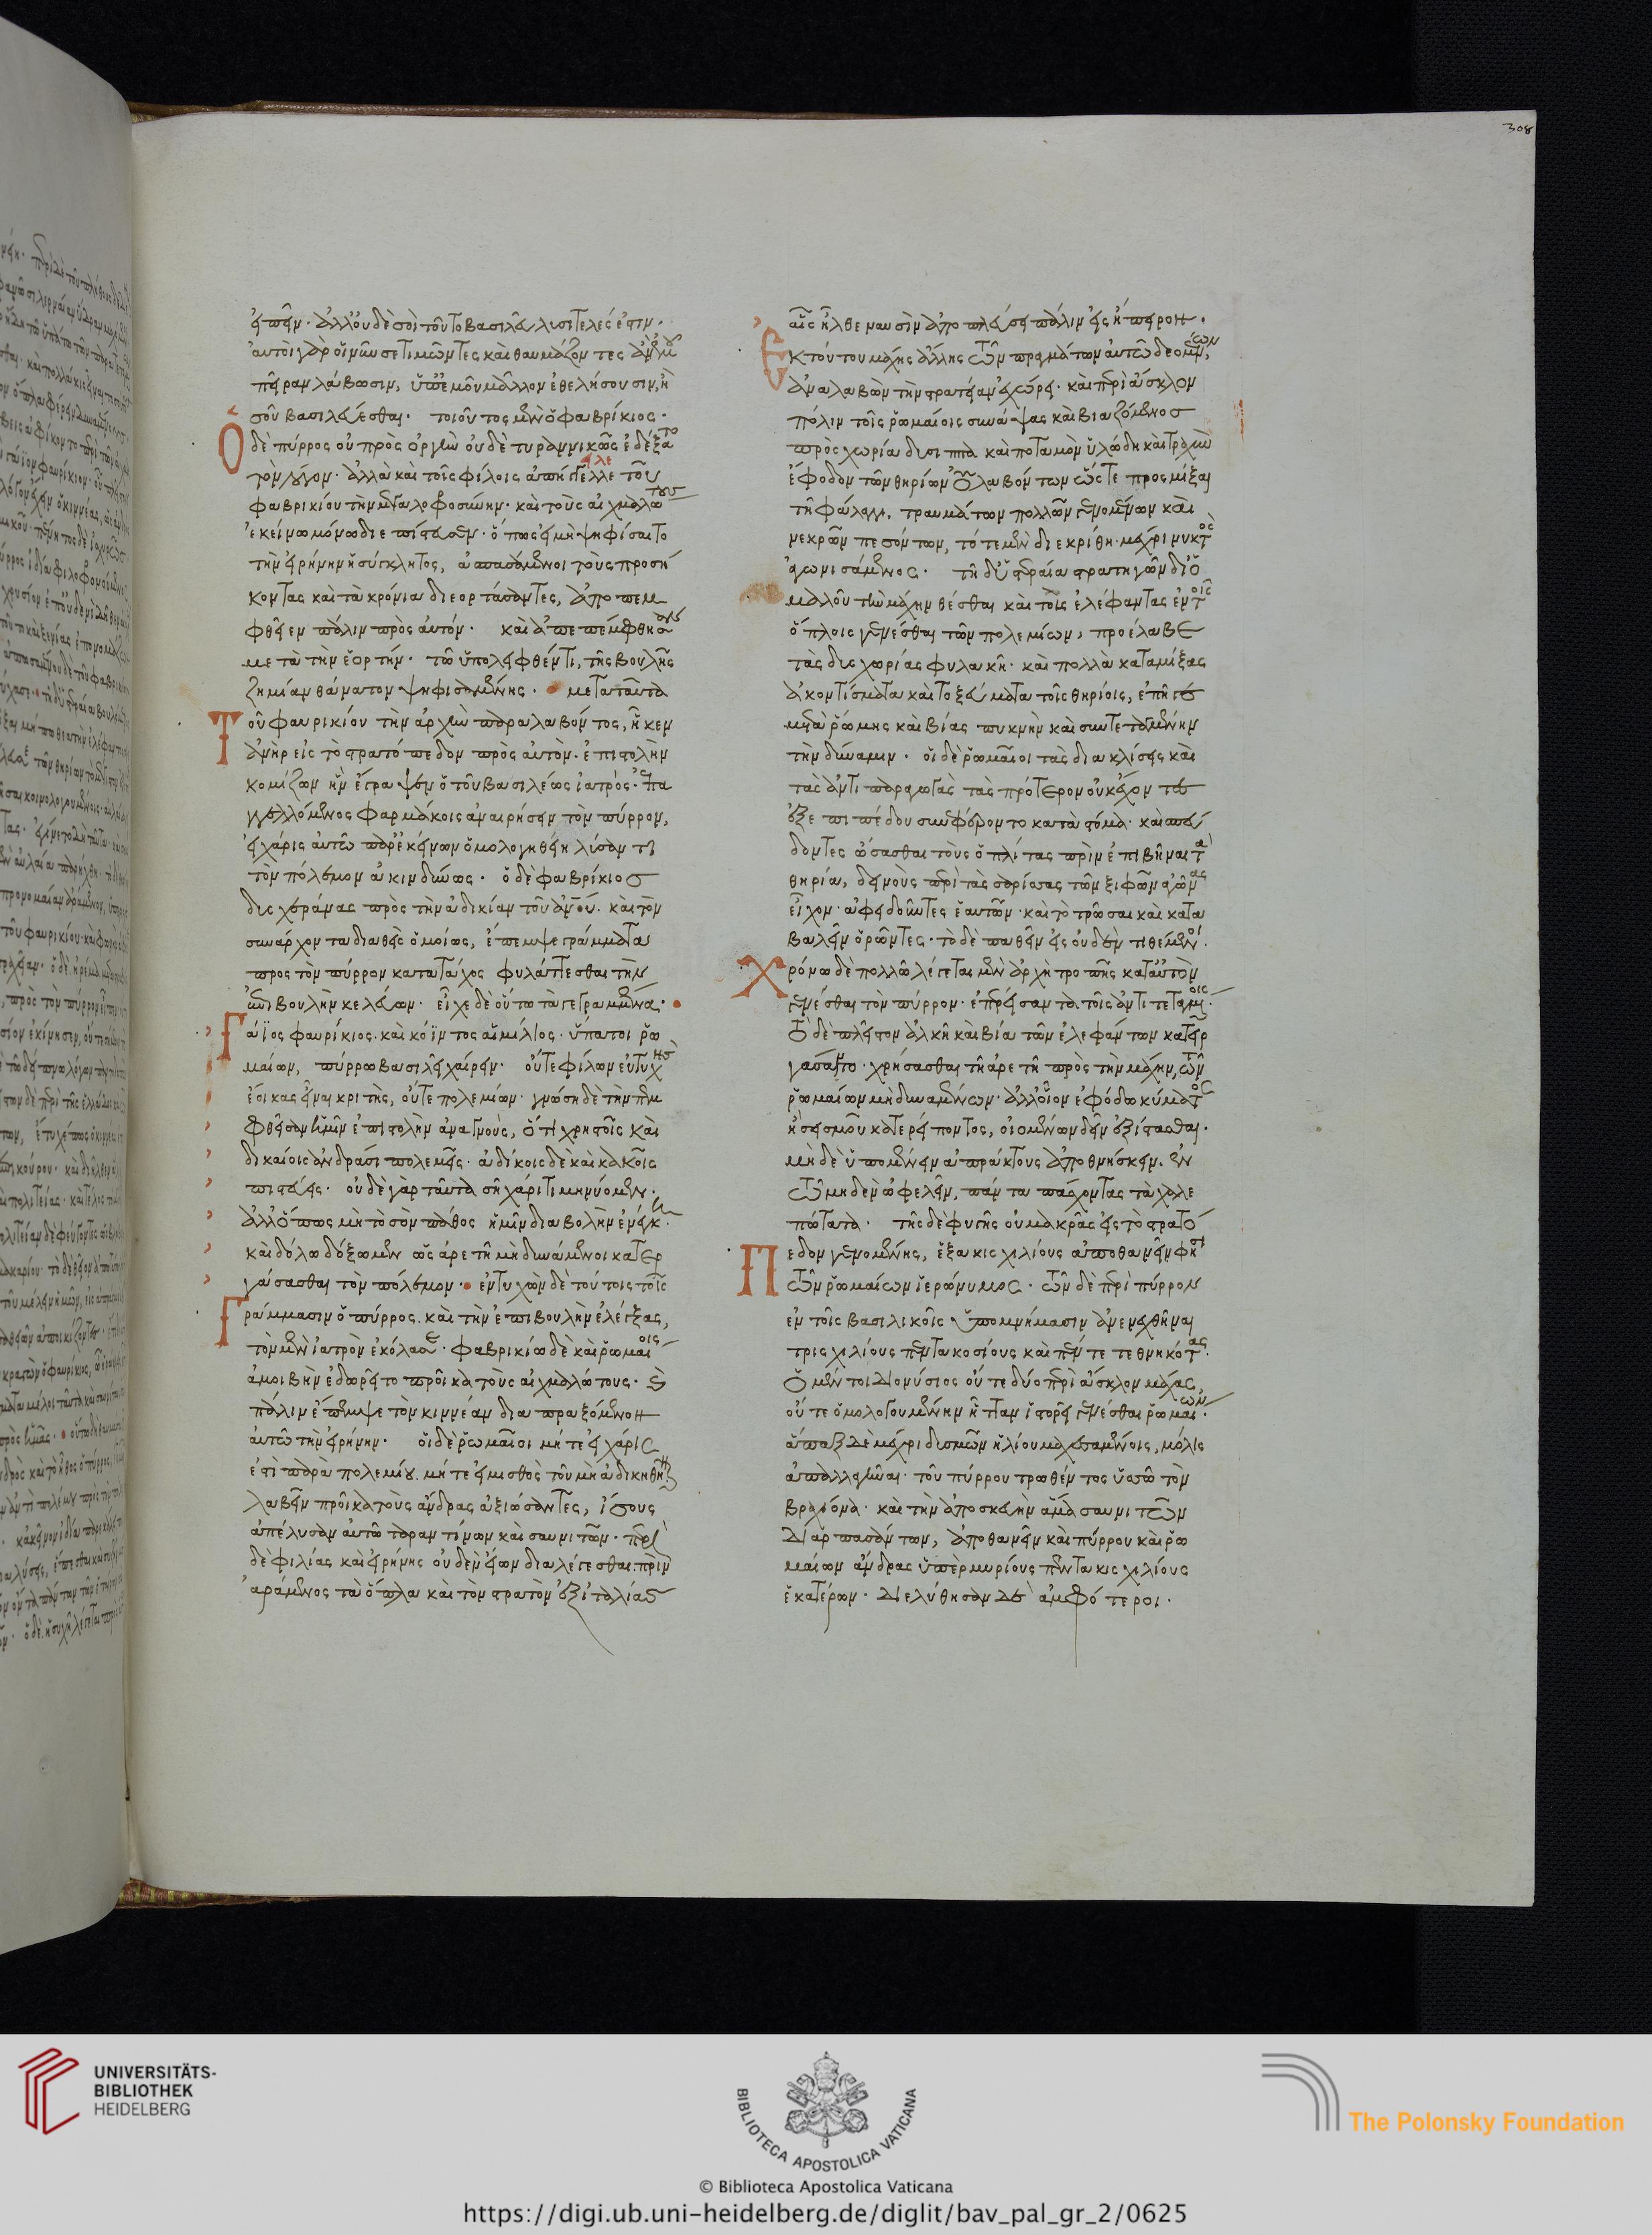 εἰπεῖν· ἀλλ' οὐδὲ σοὶ τοῦτο βασιλεῦ λυσιτελές ἐστιν·
αὐτοὶ γὰρ οἱ νῦν σε τιμῶντες καὶ θαυμάζοντες ἂν ἐμοῦ
πεῖραν λάβωσιν, ὑπ' ἐμοῦ μᾶλλον ἐθελήσουσιν, ἢ
σοῦ βασιλεύεσθαι. τοιοῦτος μὲν ὁ φαβρίκιος·
Ὁ δὲ πύρρος οὐ πρὸς ὀργὴν οὐδὲ τυραννικῶς ἐδέξατο
τὸν λόγον· ἀλλὰ καὶ τοῖς φίλοις ἀπήγγελλε τοῦ
φαβρικίου τὴν μεγαλοφροσύνην· καὶ τοὺς αἰχμαλώτους
ἐκείνω μόνω διεπίστευσεν· ὅπως εἰ μὴ ψηφίσαιτο
τὴν εἰρήνην ἡ σύγκλητος, ἀσπασάμενοι τοὺς προσή
κοντας καὶ τὰ κρόνια διεορτάσαντες, ἀποπεμ
φθεῖεν πάλιν πρὸς αὐτόν· καὶ ἀπεπέμφθησαν
μετὰ τὴν ἑορτήν· τῶ ὑπολειφθέντι, τῆς βουλῆς
ζημίαν θάνατον ψηφισαμένης. μετα ταῦτα
Τοῦ φαυρικίου τὴν ἀρχὴν παραλαβόντος, ἧκεν
ἀνὴρ εἰς τὸ στρατόπεδον πρὸς αὐτὸν. ἐπιστολὴν
κομίζων ἣν ἔγραψεν ὁ τοῦ βασιλέως ἰατρός· ἐπα
γγελλόμενος φαρμάκοις ἀναιρήσειν τὸν πύρρον,
εἰ χάρις αὐτῶ παρ' ἐκείνων ὁμολογηθείη λύσαντι
τὸν πόλεμον ἀκινδύνως. ὁ δὲ φαβρίκιος
δυσχεράνας πρὸς τὴν ἀδικίαν τοῦ ἀνου· καὶ τὸν
συνάρχοντα διαθεὶς ὁμοίως, ἔπεμψε γράμματα
προς τὸν πύρρον κατατάχος φυλάττεσθαι τὴν
ἐπιβουλὴν κελεύων. εἶχε δὲ οὕτω τὰ γεγραμμένα·
Γάϊος φαυρίκιος· καὶ κόϊντος αἰμίλιος· ὕπατοι ῥω
μαίων, πύρρω βασιλεῖ χαίρειν· οὔτε φίλων εὐτυχὴς
ἔοικας εἶναι κριτὴς, οὔτε πολεμίων· γνώση δὲ τὴν πεμ
φθεῖσαν ἡμῖν ἐπιστολὴν ἀναγνοὺς, ὅτι χρηστοῖς καὶ
δικαίοις ἀνδράσι πολεμεῖς· ἀδίκοις δὲ καὶ κακοῖς
πιστεύεις· οὐδὲ γὰρ ταῦτα σῆ χάριτι μηνύομεν·
ἀλλ' ὅπως μὴ τὸ σὸν πάθος ἡμῖν διαβολὴν ἐνέγκη
καὶ δόλω δόξωμεν ὡς ἀρετῆ μὴ δυνάμενοι κατερ
γάσασθαι τὸν πόλεμον. ἐντυχὼν δὲ τούτοις τοῖς
Γράμμασιν ὁ πύρρος. καὶ τὴν ἐπιβουλὴν ἐλέγξας,
τὸν μὲν ἰατρὸν ἐκόλασεν· φαβρικίω δὲ καὶ ῥωμαίοις
ἀμοιβὴν ἐδωρεῖτο προῖκα τοὺς αἰχμαλώτους· καὶ
πάλιν ἔπεμψε τὸν κιννέαν διαπραξόμενον
αὐτῶ τὴν εἰρήνην. οἱ δὲ ῥωμαῖοι μήτε εἰ χάρις
ἐστὶ παρὰ πολεμίου· μήτε εἰ μισθὸς τοῦ μὴ ἀδικηθῆναι
λαβεῖν προῖκα τοὺς ἄνδρας ἀξιώσαντες, ἴσους
ἀπέλυσαν αὐτῶ ταραντίνων καὶ σαυνιτῶν· περὶ
δὲ φιλίας καὶ εἰρήνης οὐδὲν εἴων διαλέγεσθαι πρὶν
ἀράμενος τὰ ὅπλα καὶ τὸν στρατὸν ἐξ ἰταλίας
αἷς ἦλθε ναυσὶν ἀποπλεύσῃ πάλιν εἰς ἤπειρον·
Εκ τούτου μάχης ἄλλης τῶν πραγμάτων αὐτῶ δεομένων,
ἀναλαβὼν τὴν στρατείαν ἐχώρει· καὶ περὶ ἄσκλον
πόλιν τοῖς ῥωμαίοις συνάψας καὶ βιαζόμενος
πρὸς χωρία δύσιππα καὶ ποταμὸν ὑλώδη καὶ τραχὺν
ἔφοδον τῶν θηρίων οὐ λαβόντων ὥστε προσμίξαι
τῆ φάλαγγι, τραυμάτων πολλῶν γενομένων καὶ
νεκρῶν πεσόντων, τότε μὲν διεκρίθη μέχρι νυκτὸς
ἀγωνισάμενος. τῆ δ' ὑστεραία στρατηγῶν δι' ὁ
μαλοῦ τὴν μάχην θέσθαι καὶ τοῖς ἐλέφαντας ἐν τοῖς
ὅπλοις γενέσθαι τῶν πολεμίων, προέλαβε
τὰς δυσχωρίας φυλακῆ· καὶ πολλὰ καταμίξας
ἀκοντίσματα καὶ τοξεύματα τοῖς θηρίοις, ἐπῆγε
μετὰ ῥώμης καὶ βίας πυκνὴν καὶ συντεταγμένην
τὴν δύναμιν. οἱ δὲ ῥωμαῖοι τὰς διακλίσεις καὶ
τὰς ἀντιπαραγωγὰς τὰς πρότερον οὐκ ἔχοντες
ἐξ ἐπιπέδου συνεφέροντο κατὰ στόμα· καὶ σπεύ
δοντες ὤσασθαι τοὺς ὁπλίτας πρὶν ἐπιβῆναι τὰ
θηρία, δεινοὺς περὶ τὰς σαρίσσας τῶν ξιφῶν ἀγῶνας
εἶχον· ἀφειδοῦντες ἑαυτῶν· καὶ τὸ τρῶσαι καὶ κατα
βαλεῖν ὁρῶντες· τὸ δὲ παθεῖν εἰς οὐδὲν τιθέμενοι.
Χρόνω δὲ πολλῶ λέγεται μὲν ἀρχὴ τροπῆς κατ' αὐτὸν
γενέσθαι τὸν πύρρον· ἐπερείσαντα τοῖς ἀντιτεταγμένοις·
Τὸ δὲ πλεῖστον ἀλκῆ καὶ βία τῶν ἐλεφάντων κατειρ
γάσαντο· χρήσασθαι τῆ ἀρετῆ πρὸς τὴν μάχην, τῶν
ῥωμαίων μὴ δυναμένων· ἀλλ' οἷον ἐφόδω κύματος
ἢ σεισμοῦ κατερείποντος, οἰομένων δεῖν ἐξίστασθαι·
μὴ δὲ ὑπομένειν ἀπράκτους ἀποθνήσκειν, ἐν
τῶ μηδὲν ὠφελεῖν, πάντα πάσχοντας τὰ χαλε
πώτατα. τῆς δὲ φυγῆς οὐ μακρᾶς εἰς τὸ στρατό
Πεδον γενομένης, ἑξακισχιλίους ἀποθανεῖν φησι
τῶν ῥωμαίων ἱερώνυμος. τῶν δὲ περὶ πύρρον
ἐν τοῖς βασιλικοῖς ὑπομνήμασιν ἀνενεχθῆναι
τρισχιλίους πεντακοσίους καὶ πέντε τεθνηκότας.
Ὁ μέντοι διονύσιος οὔτε δύο περὶ ἄσκλον μάχας
οὔτε ὁμολογουμένην ἧτταν ἱστορεῖ γενέσθαι ῥωμαίων·
ἅπαξ δὲ μέχρι δυσμῶν ἡλίου μαχεσαμένοις, μόλις
ἀπαλλαγῆναι· τοῦ πύρρου τρωθέντος ὑσσῶ τὸν
βραχίονα· καὶ τὴν ἀποσκευὴν ἅμα σαυνιτῶν
διαρπασάντων, ἀποθανεῖν καὶ πύρρου καὶ ῥω
μαίων ἄνδρας ὑπὲρ μυρίους πεντακισχιλίους
ἑκατέρων. διελύθησαν δὲ ἀμφότεροι.
308
UNIVERSITÄTS-
BIBLIOTHEK
HEIDELBERG
BIBLIOTECA APOSTOLICA VATICANA
© Biblioteca Apostolica Vaticana
The Polonsky Foundation
https://digi.ub.uni-heidelberg.de/diglit/bav_pal_gr_2/0625